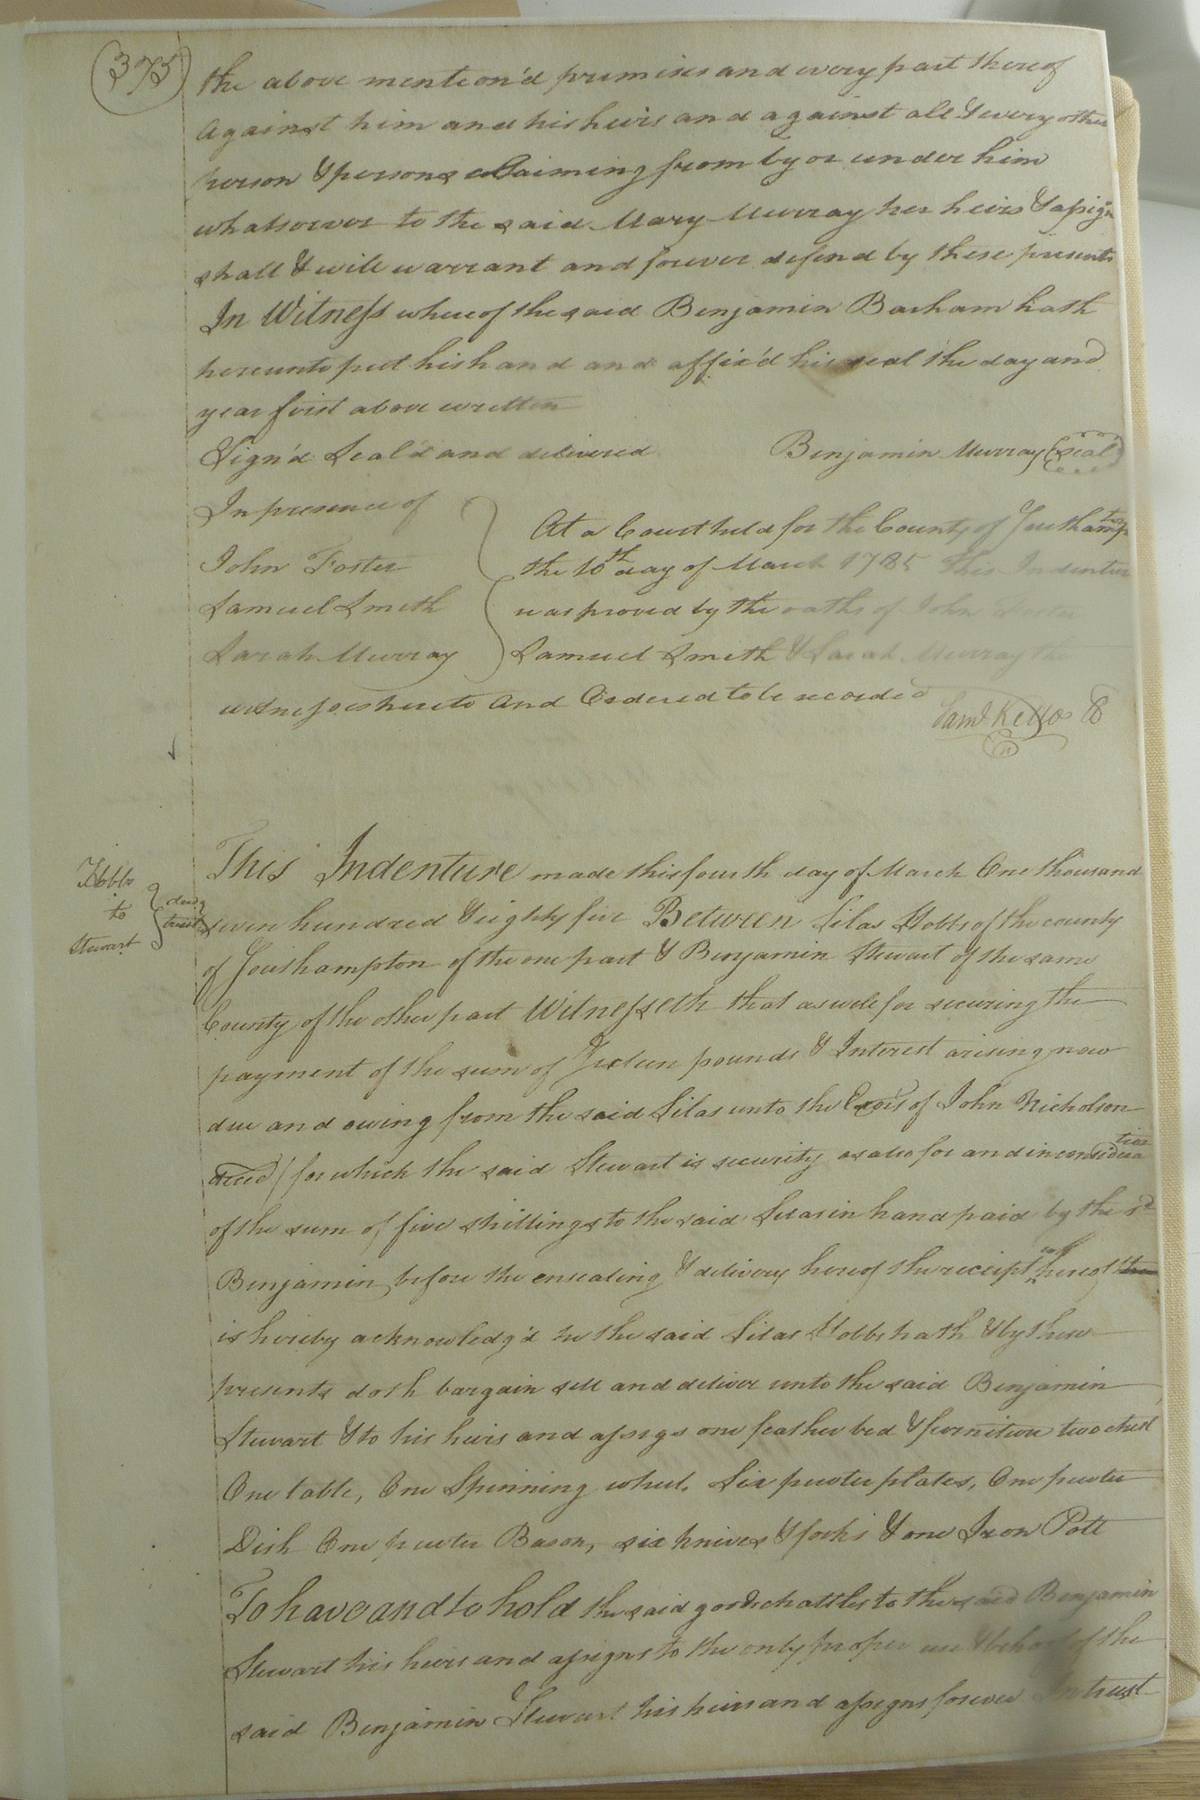 375
the above mention'd premises and every part thereof
Against him and his heirs and against all & every other
person & persons Claiming from by or under him
whatsoever to the said Mary Murray her heirs & assigns
shall & will warrant and forever defend by these presents
In Witness whereof the said Benjamin Barham hath
hereunto put his hand and affix'd his seal the day and
year first above written
Sign'd Seal'd and delivered Benjamin Murray (seal)
In presence of
John Foster
Samuel Smith
Sarah Murray
At a Court held for the County of Southampton
the 10th day of March 1785 This Indenture
was proved by the oaths of John
Samuel Smith & Sarah Murray the
witnesses hereto And Ordered to be recorded
Saml Kello
Hobbs
to
Stewart
deed
trust
This Indenture made this fourth day of March One thousand
seven hundred & eighty five Between Silas Hobbs of the county
of Southampton of the one part & Benjamin Stewart of the same
County of the other part Witnesseth that as well for securing the
payment of the sum of Sixteen pounds & Interest arising now
due and owing from the said Silas unto the Exors of John Nicholson
deced / for which the said Stewart is security as also for and in consideration
of the sum of five shillings to the said Silas in hand paid by the sd
Benjamin before the ensealing & delivery hereof the receipt hereof
is hereby acknowledg'd he the said Silas Hobbs hath & by these
presents doth bargain sell and deliver unto the said Benjamin
Stewart & to his heirs and assigs one feather bed & furniture two chest
One table, One Spinning wheel, Six pewter plates, One pewter
Dish One pewter Bason, six knives & forks & one Iron Pott
To have and to hold the said goods chattles to the said Benjamin
Stewart his heirs and assigns to the only proper use & behoof of the
said Benjamin Stewart his heirs and assigns forever In trust